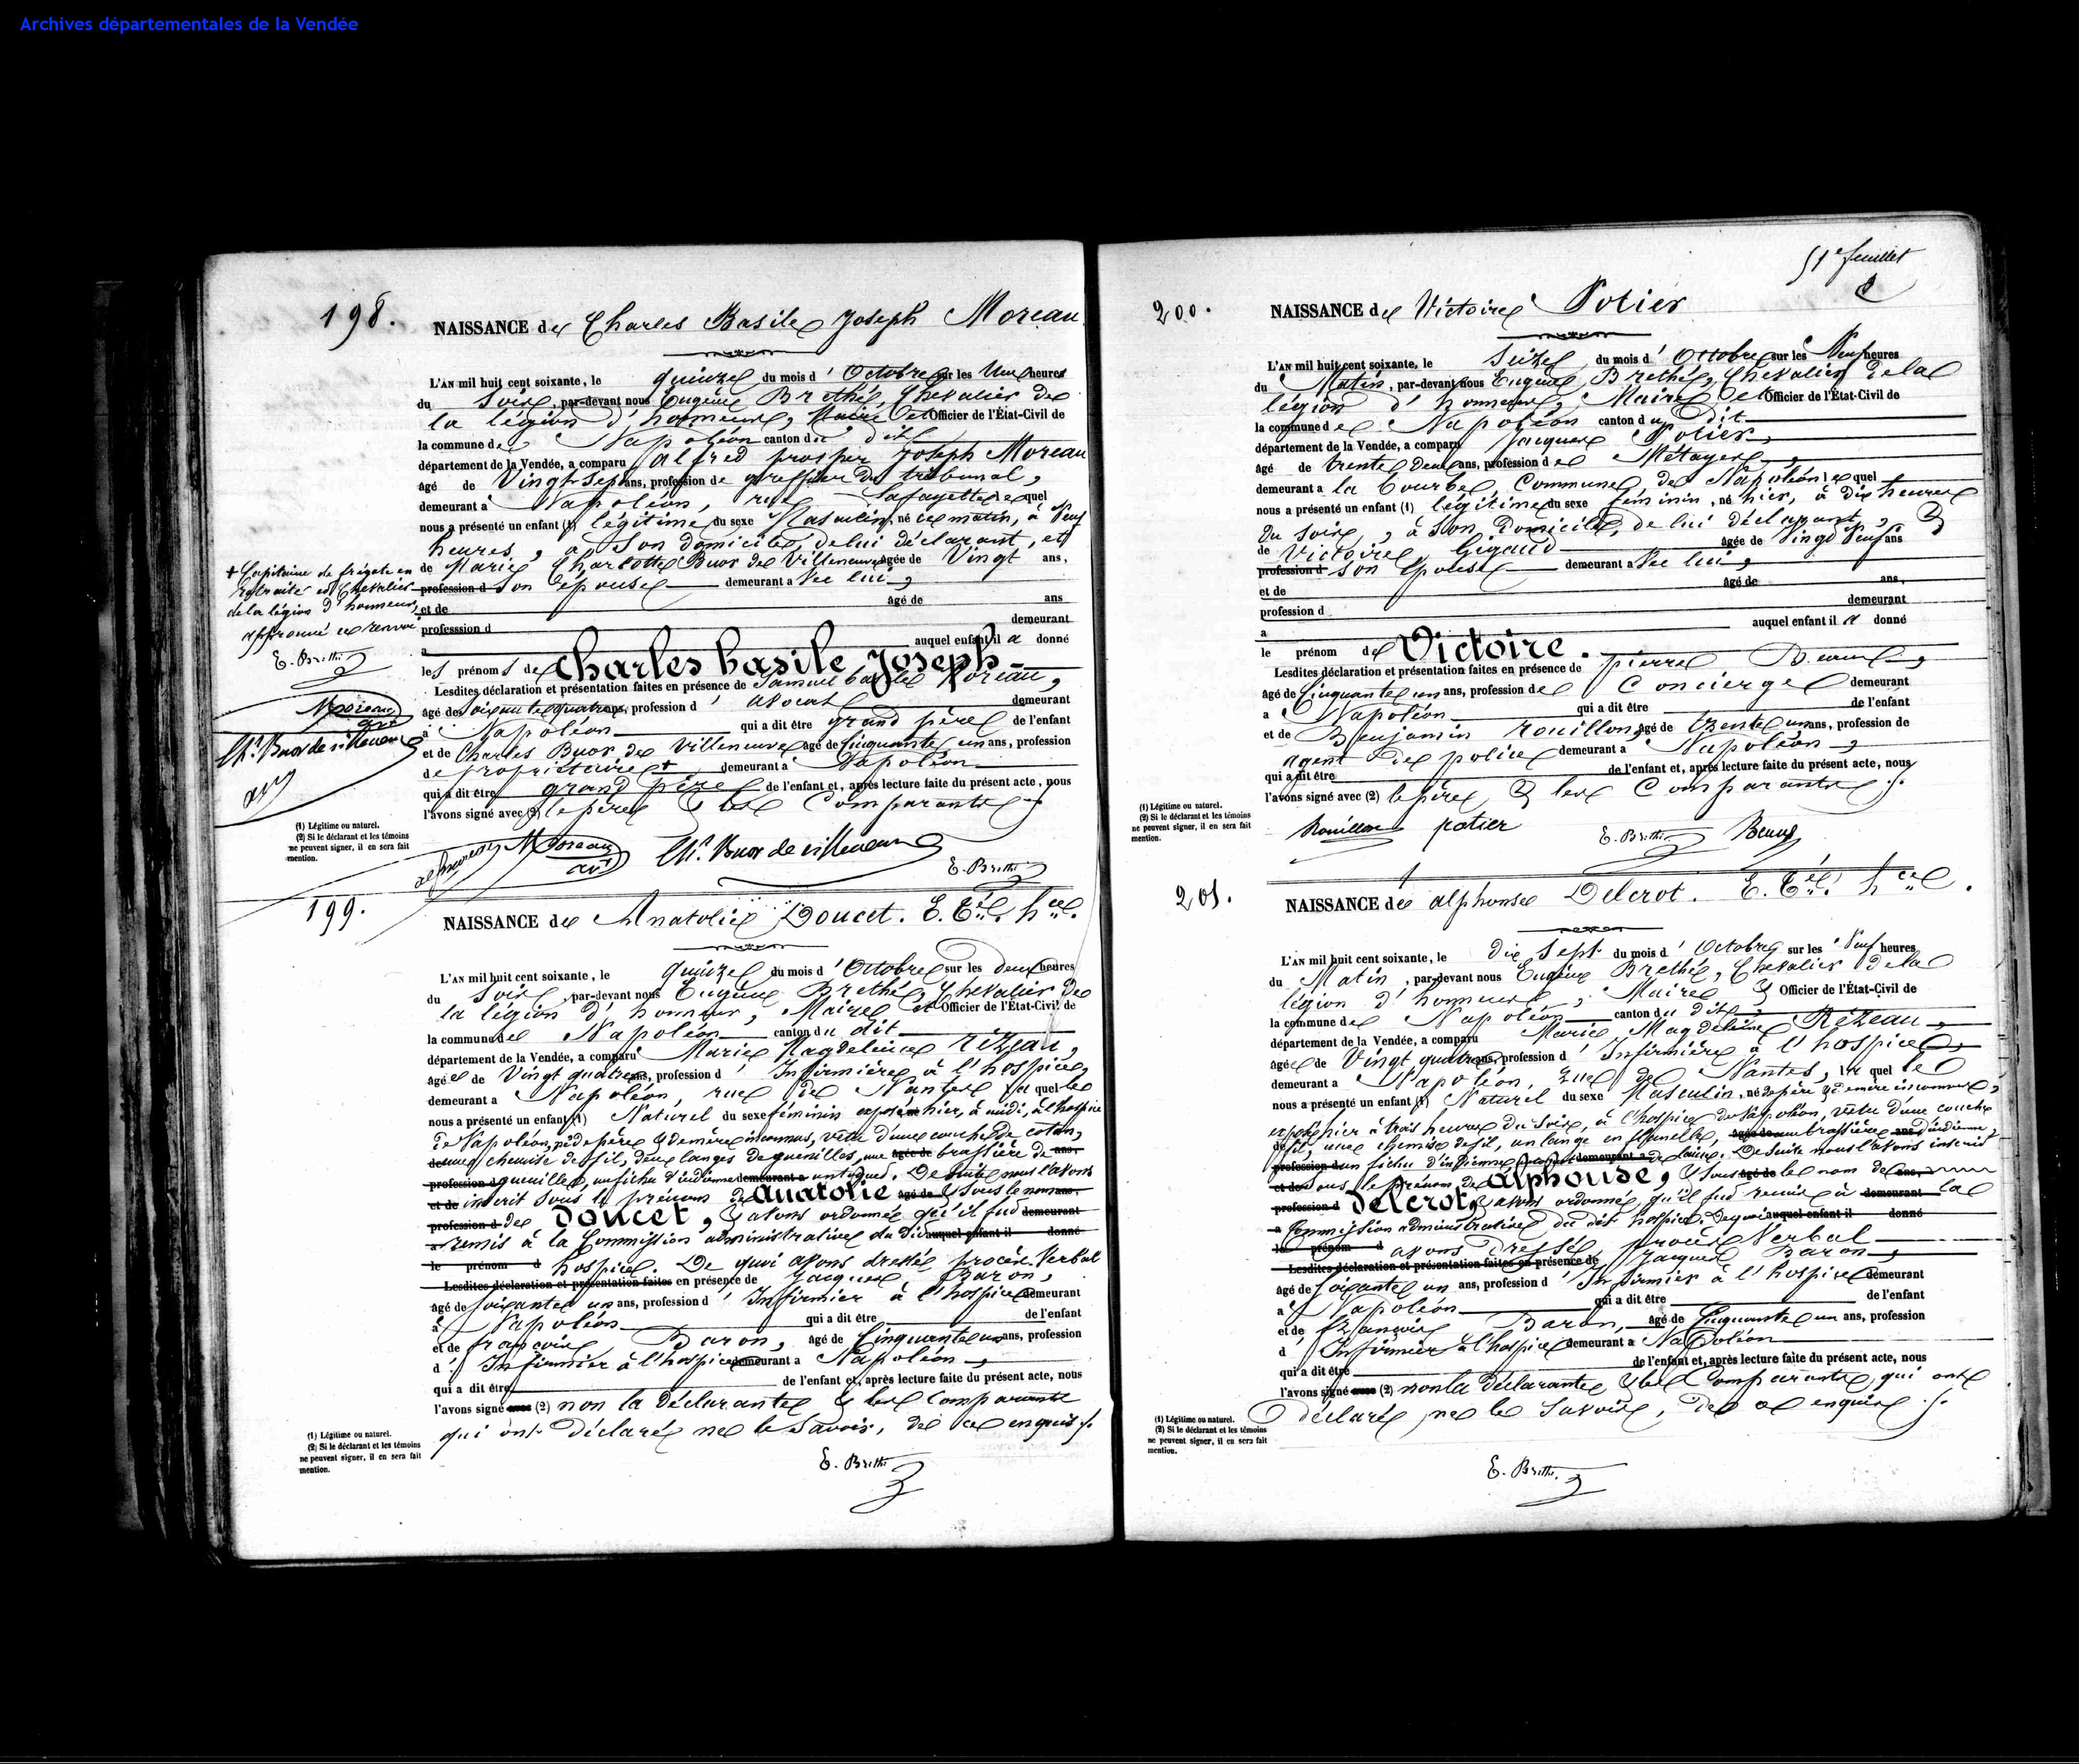 Archives départementales de la Vendée
198.
NAISSANCE de Charles Basile Joseph Moreau
L'AN mil huit cent soixante, le quinze du mois d'Octobre sur les Une heures
du Soir, par-devant nous Eugène Brethé, Chevalier de
la légion d'honneur, Maire et Officier de l'État-Civil de
la commune de Napoléon canton du dit
département de la Vendée, a comparu Alfred prosper Joseph Moreau
âgé de Vingt-Sept ans, profession de greffier du tribunal,
demeurant à Napoléon, rue Lafayette lequel
nous a présenté un enfant (1) légitime du sexe Masculin, né ce matin, à Neuf
heures, à Son domicile, de lui déclarant, et
de Marie Charlotte Buor de Villeneuve âgée de Vingt ans,
profession d Son épouse demeurant a Vec lui,
et de âgé de ans
professsion d demeurant
a auquel enfant il a donné
les prénoms de Charles basile Joseph
Lesdites déclaration et présentation faites en présence de Samuel basile Moreau,
âgé de Soixante quatre ans, profession d'avocat demeurant
à Napoléon qui a dit être grand père de l'enfant
et de Charles Buor de Villeneuve âgé de Cinquante un ans, profession
de propriétaire + demeurant à Napoléon
qui a dit être grand père de l'enfant et, après lecture faite du présent acte, nous
l'avons signé avec (2) le père & les Comparants ./.
+ Capitaine de frégate en
retraite et Chevalier
de la légion d'honneur,
approuvé ce renvoi
E. Brethé
Moreau
avt
Ch. Buor de villeneuve
(1) Légitime ou naturel.
(2) Si le déclarant et les témoins
ne peuvent signer, il en sera fait
mention.
Moreau
avt
Ch. Buor de villeneuve
E. Brethé
199.
NAISSANCE de Anatolie Doucet. E. Tél. hcel.
L'AN mil huit cent soixante, le quinze du mois d'Octobre sur les deux heures
du Soir, par-devant nous Eugène Brethé, Chevalier de
la légion d'honneur, Maire et Officier de l'État-Civil de
la commune de Napoléon canton du dit
département de la Vendée, a comparu Marie Magdeleine rézeau,
âgée de Vingt quatre ans, profession d'Infirmière à l'hospice,
demeurant à Napoléon, rue de Nantes laquelle
nous a présenté un enfant (1) Naturel du sexe féminin exposé hier, à midi, à l'hospice
de Napoléon, né de père & de mère inconnus, vêtu d'une couche de coton,
d'une chemise de fil, deux langes de guenilles, une âgée de brassière de ans,
profession d guenilles, un fichu d'indienne demeurant a un toquet. De suite nous l'avons
et de inscrit Sous le prénom de Anatolie âgé de & Sous le nom ans,
profession d de Doucet, & avons ordonné qu'il fud demeurant
a remis à la Commission administrative du dit auquel enfant il donné
le prénom d hospice. De quoi avons dressé procès-Verbal
Lesdites déclaration et présentation faites en présence de Jacques Baron,
âgé de soixante un ans, profession d'Infirmier à l'hospice demeurant
à Napoléon qui a dit être de l'enfant
et de françois Baron, âgé de Cinquante un ans, profession
d'Infirmier à l'hospice demeurant a Napoléon,
qui a dit être de l'enfant et, après lecture faite du présent acte, nous
l'avons signé avec (2) non la déclarante & les Comparants
qui ont déclaré ne le Savoir, de ce enquis ./.
(1) Légitime ou naturel.
(2) Si le déclarant et les témoins
ne peuvent signer, il en sera fait
mention.
E. Brethé
51e feuillet
200.
NAISSANCE de Victoire Potier
L'AN mil huit cent soixante, le Seize du mois d'Octobre sur les Neuf heures
du Matin, par-devant nous Eugène Brethé, Chevalier de la
légion d'honneur, Maire et Officier de l'État-Civil de
la commune de Napoléon canton du dit
département de la Vendée, a comparu Jacques Potier,
âgé de trente deux ans, profession de Métayer,
demeurant a la Courbe, Commune de Napoléon lequel
nous a présenté un enfant (1) légitime du sexe féminin, né hier, à dix heures
du Soir, à Son Domicile, de lui déclarant, &
de Victoire Gigaud âgée de Vingt Neuf ans
profession d son épouse demeurant a Vec lui,
et de âgé de ans,
profession d demeurant
a auquel enfant il a donné
le prénom de Victoire.
Lesdites déclaration et présentation faites en présence de pierre
âgé de Cinquante un ans, profession de Concierge demeurant
a Napoléon qui a dit être de l'enfant
et de Benjamin rouillon, âgé de trente un ans, profession de
agent de police demeurant a Napoléon,
qui a dit être de l'enfant et, après lecture faite du présent acte, nous
l'avons signé avec (2) le père, & les Comparants ./.
(1) Légitime ou naturel.
(2) Si le déclarant et les témoins
ne peuvent signer, il en sera fait
mention.
Rouillon potier E. Brethé
201.
NAISSANCE de alphonse Delcrot. E. Tél. hcel.
L'AN mil huit cent soixante, le dix Sept du mois d'Octobre sur les Neuf heures
du Matin, par-devant nous Eugène Brethé, Chevalier de la
légion d'honneur, Maire & Officier de l'État-Civil de
la commune de Napoléon canton du dit,
département de la Vendée, a comparu Marie Magdeleine Rézeau,
âgée de Vingt quatre ans, profession d'Infirmière à l'hospice,
demeurant a Napoléon, rue de Nantes, laquelle
nous a présenté un enfant (1) Naturel du sexe Masculin, né de père & de mère inconnus,
exposé hier à trois heures du Soir, à l'hospice de Napoléon, vêtu d'une couche
de fil, une chemise de fil, un lange en flanelle, âgée de une brassière ans d'indienne,
profession d un fichu d'indienne, demeurant a de laine. De suite nous l'avons inscrit
et de Sous le prénom de Alphonse, & Sous âgé de le nom de ans,
profession d Delcrot, & avons ordonné, qu'il fud remis à demeurant la
a Commission administrative du dit hospice. De quoi auquel enfant il donné
le prénom d avons Dressé procès Verbal
Lesdites déclaration et présentation faites en présence de Jacques Baron,
âgé de soixante un ans, profession d'Infirmier à l'hospice demeurant
a Napoléon qui a dit être de l'enfant
et de françois Baron, âgé de Cinquante un ans, profession
d'Infirmier à l'hospice demeurant a Napoléon
qui a dit être de l'enfant et, après lecture faite du présent acte, nous
l'avons signé avec (2) non la déclarante & les Comparants, qui ont
déclaré ne le Savoir, de ce enquis ./.
(1) Légitime ou naturel.
(2) Si le déclarant et les témoins
ne peuvent signer, il en sera fait
mention.
E. Brethé